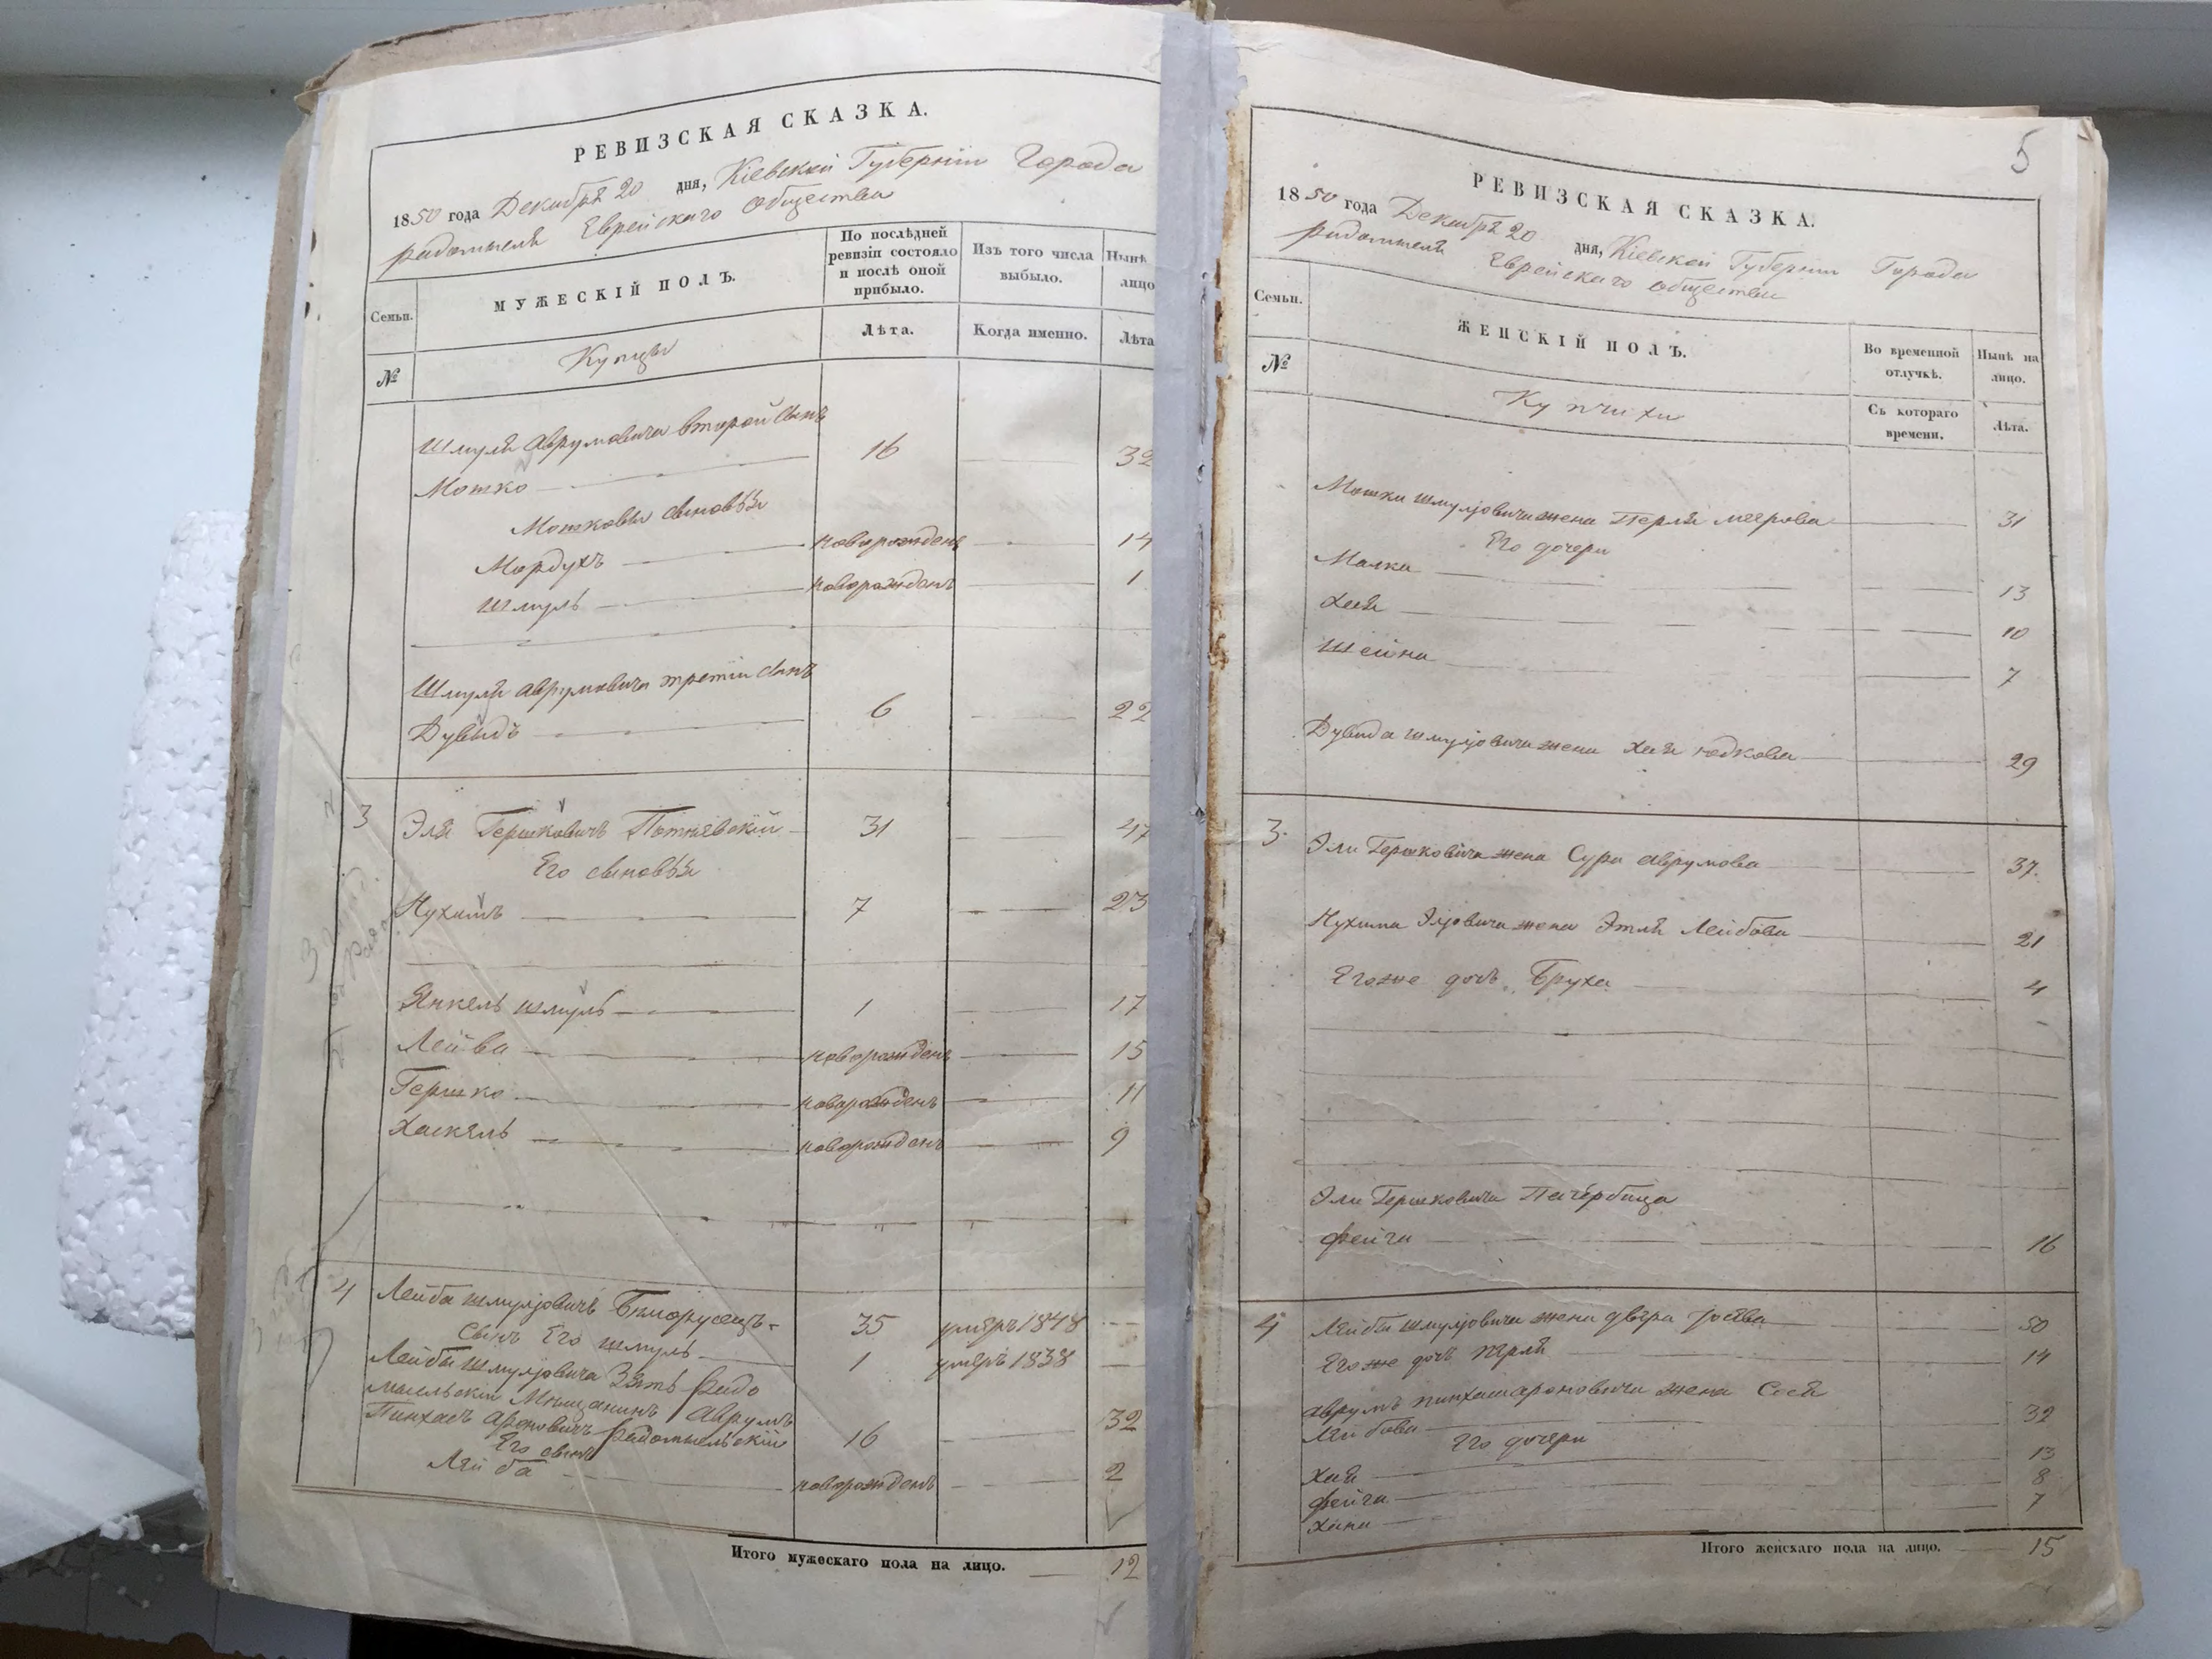 РЕВИЗСКАЯ СКАЗКА.
1850 года Декабря 20 дня, Кіевской Губерніи Города
Радомысля Еврейскаго Общества
Семьи.
МУЖЕСКІЙ ПОЛЪ.
По послѣдней ревизіи состояло и послѣ оной прибыло.
Изъ того числа выбыло.
Нынѣ лицо
№
Купцы
Лѣта.
Когда именно.
Лѣта
Шмуля Аврумовича второй сынъ
Мошко 16 32
Мошковы сыновья
Мордухъ новорожденъ 14
Шмуль новорожденъ 1
Шмуля Аврумовича третій сынъ
Дувидъ 6 22
3 Эля Гершковичъ 31 47
Его сыновья
Нухимъ 7 23
Янкель Шмуль 1 17
Лейба новорожденъ 15
Гершко новорожденъ 11
Хаскель новорожденъ 9
4 Лейба Шмулёвичъ 35 умеръ 1848
Сынъ Его Шмуль 1 умеръ 1838
Лейбы Шмулёвича Зять Радо
мысльскій Мещанинъ Аврумъ
Пинхасъ Ароновичъ Радомысльскій 16 32
Его сынъ
Лейба новорожденъ 2
Итого мужескаго пола на лицо. 12
5
РЕВИЗСКАЯ СКАЗКА.
1850 года Декабря 20 дня, Кіевской Губерніи Города
Радомысля Еврейскаго Общества
Семьи.
ЖЕНСКІЙ ПОЛЪ.
Во временной отлучкѣ.
Нынѣ на лицо.
№
Купчихи
Съ котораго времени.
Лѣта.
Мошки Шмулёвича жена Перля Меерова 31
Его дочери
Малка 13
Хая 10
Шейна 7
Дувида Шмулёвича жена Хая Юдкова 29
3. Эли Гершковича жена Сура Аврумова 37.
Нухима Элёвича жена Этля Лейбова 21
Егоже дочь Бруха 4
Эли Гершковича Падчерица
Фейга 16
4 Лейбы Шмулёвича жена Двейра 50
Егоже дочь Перля 14
Аврумъ Пинхаса Ароновича жена Сося
Лейбова 32
Его дочери
Хая 13
Фейга 8
Хана 7
Итого женскаго пола на лицо. 15